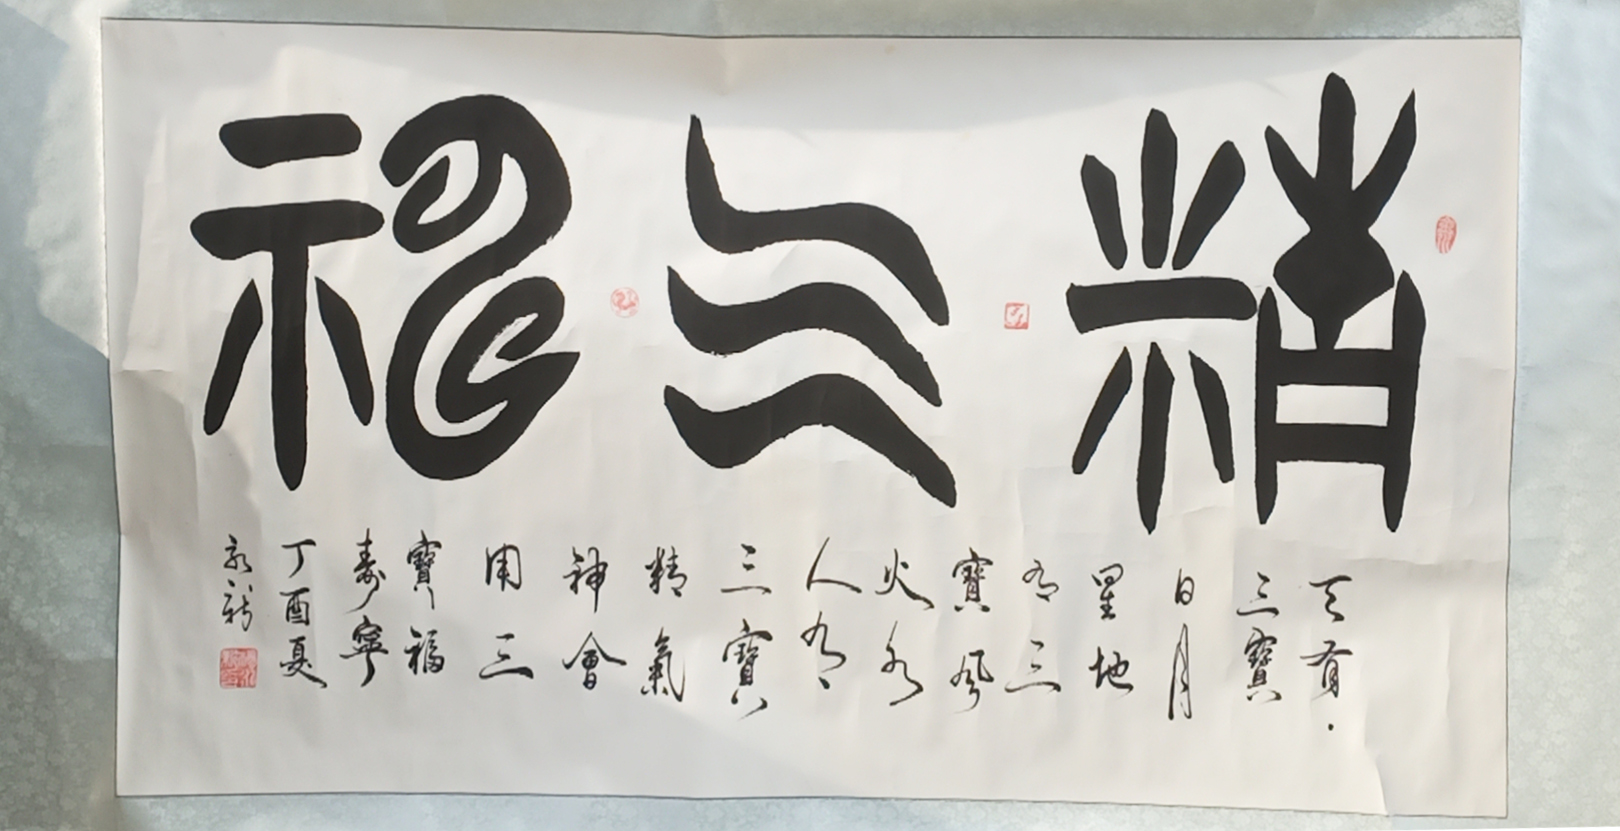 精气神
天有
三寶
日月
星地
有三
寶風
火水
人有
三寶
精氣
神會
用三
寶福
壽寧
丁酉夏